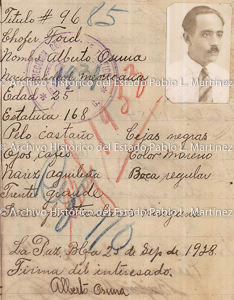 Titulo # 96 85
Chofer Ford.
Nombre Alberto Osuna
Nacionalidad Mexicana
Edad 25
Estatura 168
Pelo castaño Cejas negras
Ojos café Color Moreno
Nariz aguileña Boca regular
Frente grande
Archivo Histórico del Estado Pablo L. Martínez
Archivo Histórico del Estado Pablo L. Martínez
Archivo Histórico del Estado Pablo L. Martínez
Archivo Histórico del Estado Pablo L. Martínez
La Paz, B.Cfa 25 de Sep. de 1928.
Firma del interesado.
Alberto Osuna